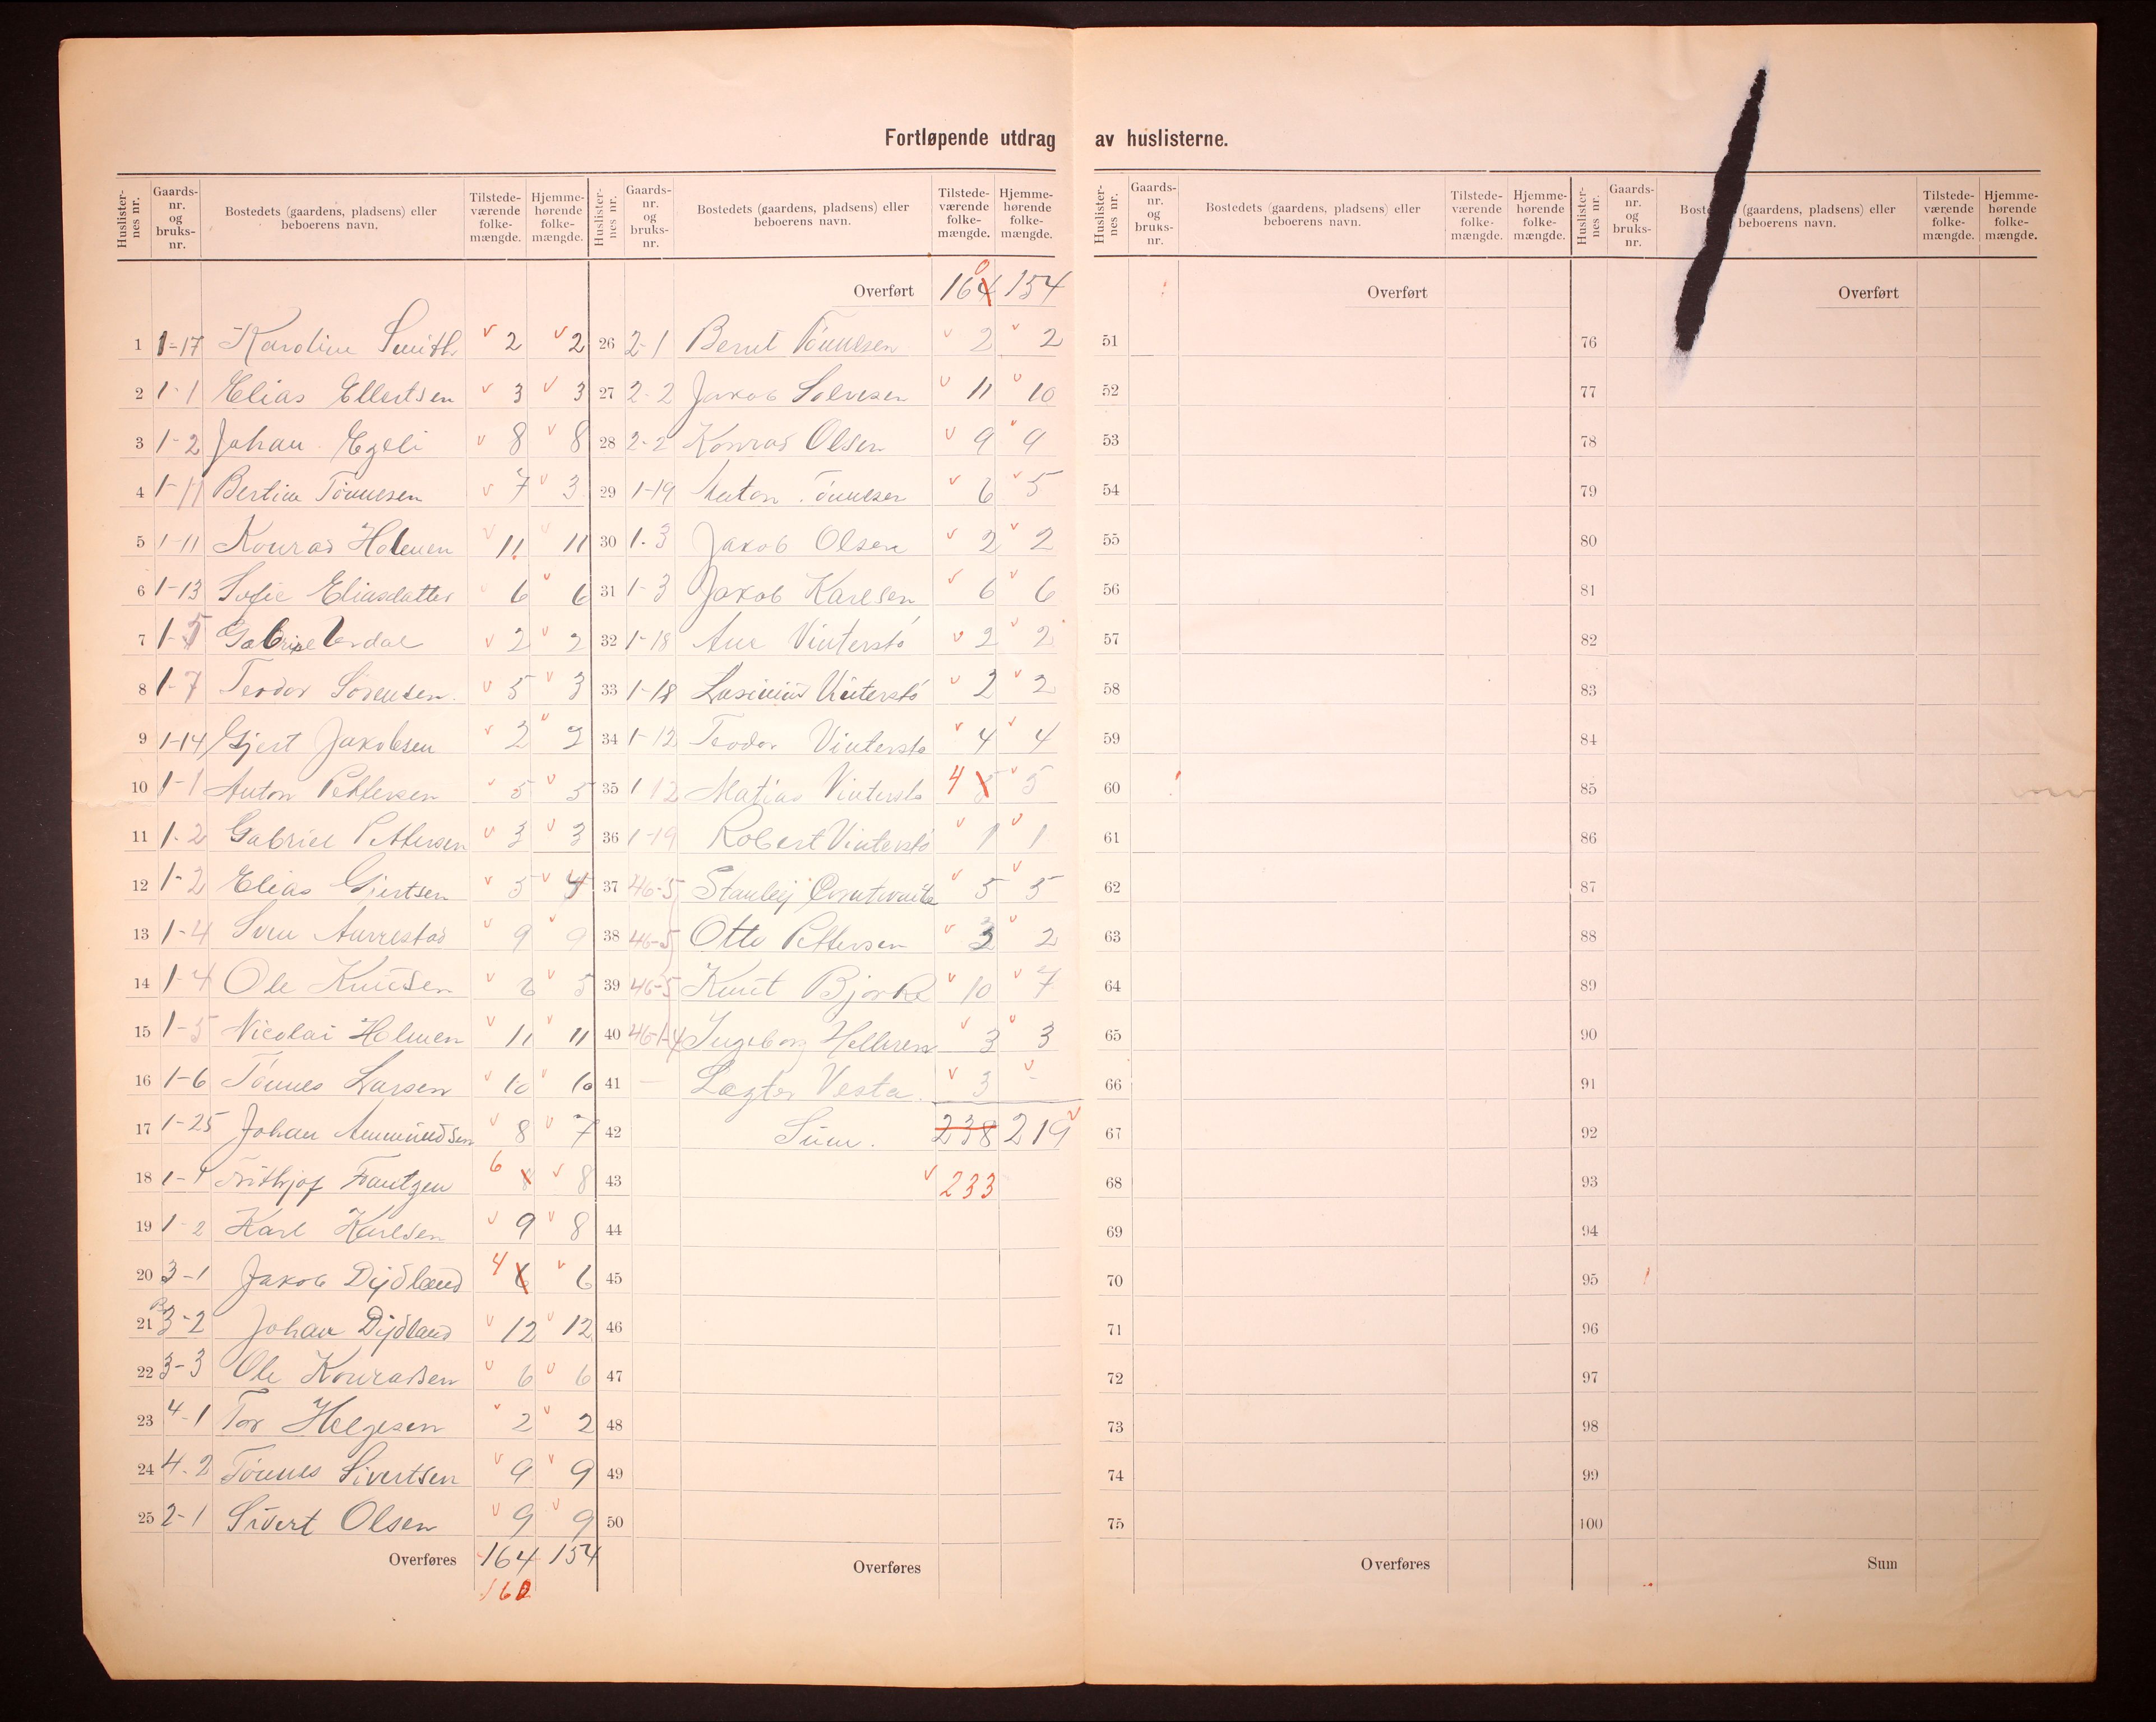 Fortløpende utdrag av huslisterne.
Huslister-nes nr. Gaards-nr. og bruks-nr. Bostedets (gaardens, pladsens) eller beboerens navn. Tilstede-værende folke-mængde. Hjemme-hørende folke-mængde.
1 1-17 Karoline Smith 2 2
2 1-1 Elias Ellertsen 3 3
3 1-2 Johan Egeli 8 8
4 1-11 Bertine Tönnesen 7 3
5 1-11 Konrad Holmen 11 11
6 1-13 Sofie Eliasdatter 6 6
7 1-5 Gabriel 2 2
8 1-7 Teodor Sörensen 5 3
9 1-14 Gjert Jakobsen 2 2
10 1-1 Anton Pettersen 5 5
11 1-2 Gabriel Pettersen 3 3
12 1-2 Elias Gjertsen 5 4
13 1-4 Aurrestad 9 9
14 1-4 Ole Knutsen 6 5
15 1-5 Nicolai Holmen 11 11
16 1-6 Tönnes Larsen 10 10
17 1-25 Johan Ammundsen 8 7
18 1-1 Frithjof Frantzen 6 8 8
19 1-2 Karl Karlsen 9 8
20 3-1 Jakob Dydland 4 6 6
21 3-2 Johan Dydland 12 12
22 3-3 Ole Konradsen 6 6
23 4-1 Tor Helgesen 2 2
24 4-2 Tönnes Sivertsen 9 9
25 2-1 Sivert Olsen 9 9
Overføres 164 154
160
Huslister-nes nr. Gaards-nr. og bruks-nr. Bostedets (gaardens, pladsens) eller beboerens navn. Tilstede-værende folke-mængde. Hjemme-hørende folke-mængde.
Overført 164 0 154
26 2-1 Bernt Tönnesen 2 2
27 2-2 Jakob Salvesen 11 10
28 2-2 Konrad Olsen 9 9
29 1-19 Anton Tönnesen 6 5
30 1-3 Jakob Olsen 2 2
31 1-3 Jakob Karlsen 6 6
32 1-18 Ane Vinterstö 2 2
33 1-18 Vinterstö 2 2
34 1-12 Teodor Vinterstö 4 4
35 1-12 Matias Vinterstö 4 5 5
36 1-19 Robert Vinterstö 1 1
37 46-5 Stanley 5 5
38 46-5 Otto Pettersen 3 2
39 46-5 Knut Bjorke 10 7
40 46-1-4 Ingeborg Helleren 3 3
41 — Lægter Vesta. 3 -
42 Sum. 238 219
43 233
44
45
46
47
48
49
50
Overføres
Huslister-nes nr. Gaards-nr. og bruks-nr. Bostedets (gaardens, pladsens) eller beboerens navn. Tilstede-værende folke-mængde. Hjemme-hørende folke-mængde.
Overført
51
52
53
54
55
56
57
58
59
60
61
62
63
64
65
66
67
68
69
70
71
72
73
74
75
Overføres
Huslister-nes nr. Gaards-nr. og bruks-nr. (gaardens, pladsens) eller beboerens navn. Tilstede-værende folke-mængde. Hjemme-hørende folke-mængde.
Overført
76
77
78
79
80
81
82
83
84
85
86
87
88
89
90
91
92
93
94
95
96
97
98
99
100
Sum